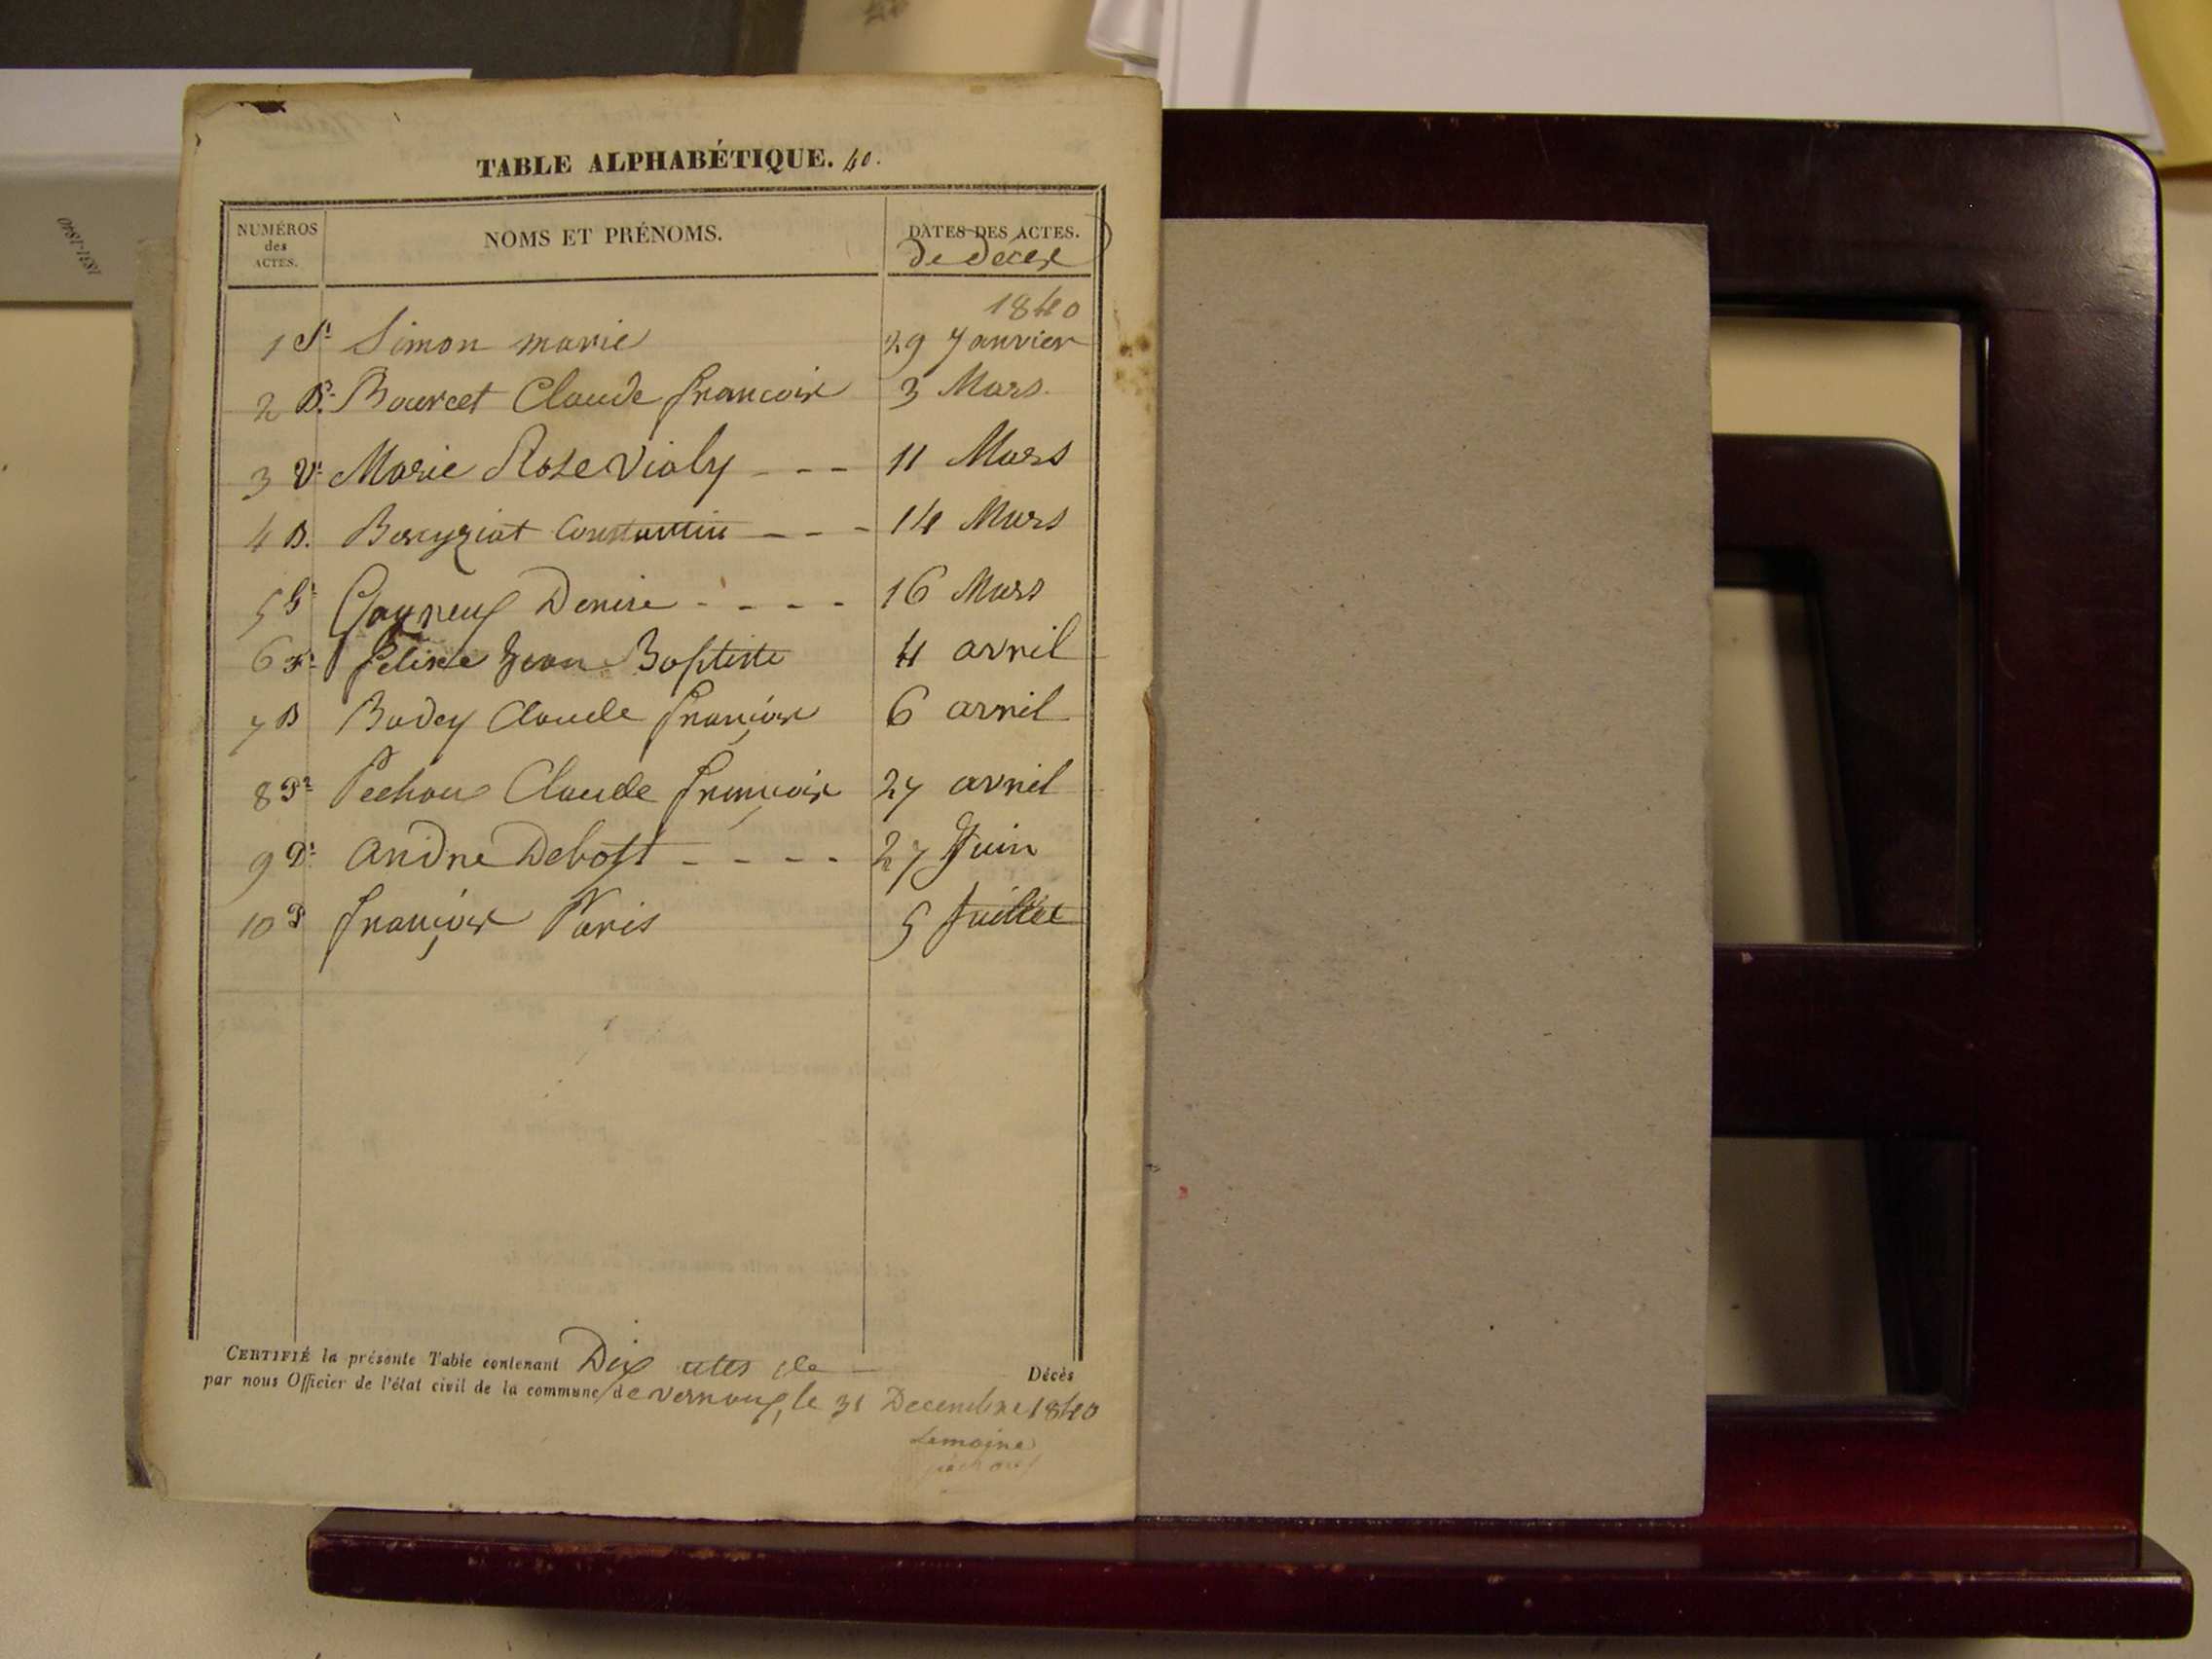 TABLE ALPHABÉTIQUE. 40.
NUMÉROS des ACTES. NOMS ET PRÉNOMS. DATES DES ACTES.
de décex
1840
1 St Simon marie 29 Janvier
2 Bt Bourcet Claude francoix 3 Mars
3 Vt Marie Rose Vialy - - - 11 Mars
4 B. Beryziat Constantin - - - 14 Mars
5 Gt Denise - - - - 16 Mars
6 Ft felixe Jean Baptiste 4 avril
7 B Badey Claude françoix 6 avril
8 Pt Pechoux Claude françoix 27 avril
9 Dt andre Debost - - - - 27 Juin
10 P françoix Paris 5 Juillet
CERTIFIÉ la présente Table contenant Dix actes de Décès
par nous Officier de l'état civil de la commune de vernoux, le 31 Decembre 1840
Lemoine
1831-1840